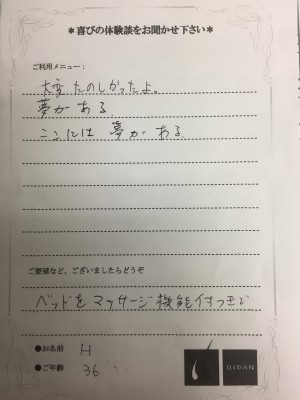 ＊喜びの体験談をお聞かせ下さい＊
ご利用メニュー：
大変たのしかったよ。
夢がある
ここには夢がある
ご要望など、ございましたらどうぞ
ベッドをマッサージ機能付つきで
●お名前 H
●ご年齢 36
JIDAN